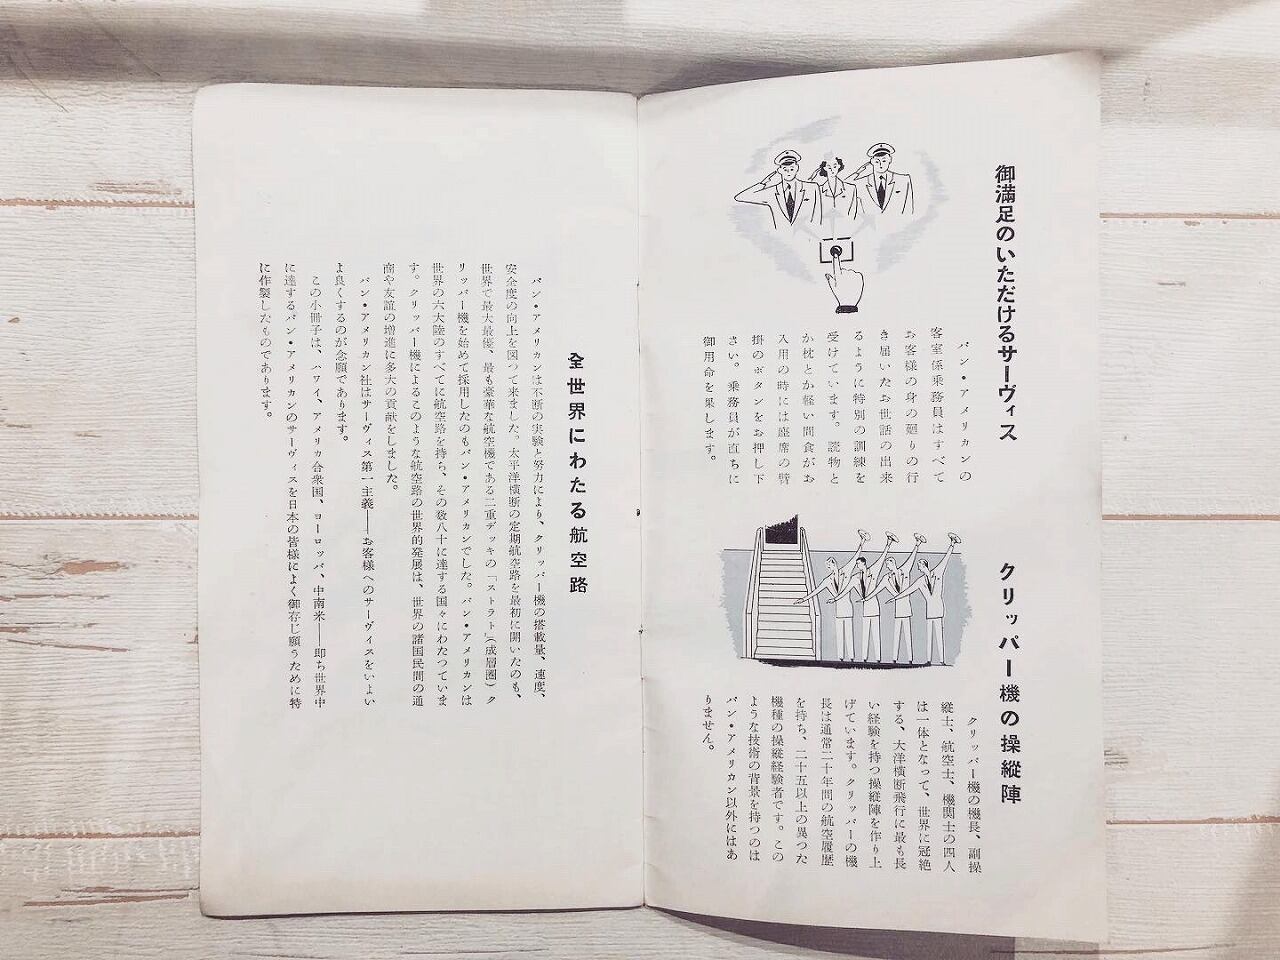 御満足のいただけるサーヴィス
パン・アメリカンの
客室係乗務員はすべて
お客様の身の廻りの行
き届いたお世話の出来
るように特別の訓練を
受けています。読物と
か枕とか軽い間食がお
入用の時には座席の臂
掛のボタンをお押し下
さい。乗務員が直ちに
御用命を果します。
クリッパー機の操縦陣
クリッパー機の機長、副操
縦士、航空士、機関士の四人
は一体となって、世界に冠絶
する、大洋横断飛行に最も長
い経験を持つ操縦陣を作り上
げています。クリッパーの機
長は通常二十年間の航空履歴
を持ち、二十五以上の異つた
機種の操縦経験者です。この
ような技術の背景を持つのは
パン・アメリカン以外にはあ
りません。
全世界にわたる航空路
パン・アメリカンは不断の実験と努力により、クリッパー機の搭載量、速度、
安全度の向上を図つて来ました。太平洋横断の定期航空路を最初に開いたのも、
世界で最大最優、最も豪華な航空機である二重デッキの「ストラト」(成層圏)ク
リッパー機を始めて採用したのもパン・アメリカンでした。パン・アメリカンは
世界の六大陸のすべてに航空路を持ち、その数八十に達する国々にわたつていま
す。クリッパー機によるこのような航空路の世界的発展は、世界の諸国民間の通
商や友誼の増進に多大の貢献をしました。
パン・アメリカン社はサーヴィス第一主義――お客様へのサーヴィスをいよい
よ良くするのが念願であります。
この小冊子は、ハワイ、アメリカ合衆国、ヨーロッパ、中南米――即ち世界中
に達するパン・アメリカンのサーヴィスを日本の皆様によく御存じ願うために特
に作製したものであります。